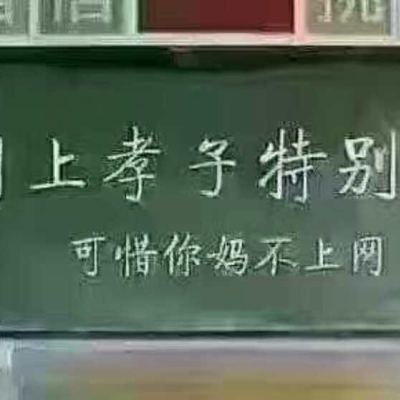 上孝子特别
可惜你妈不上网